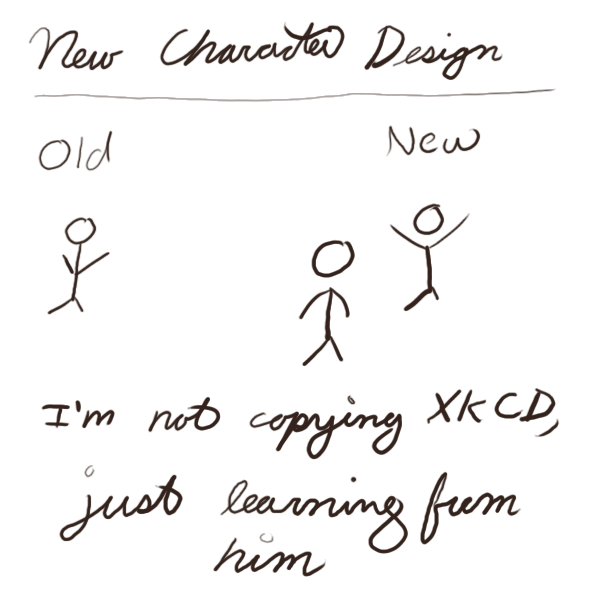 New Character Design
Old
New
I'm not copying XKCD,
just learning from
him